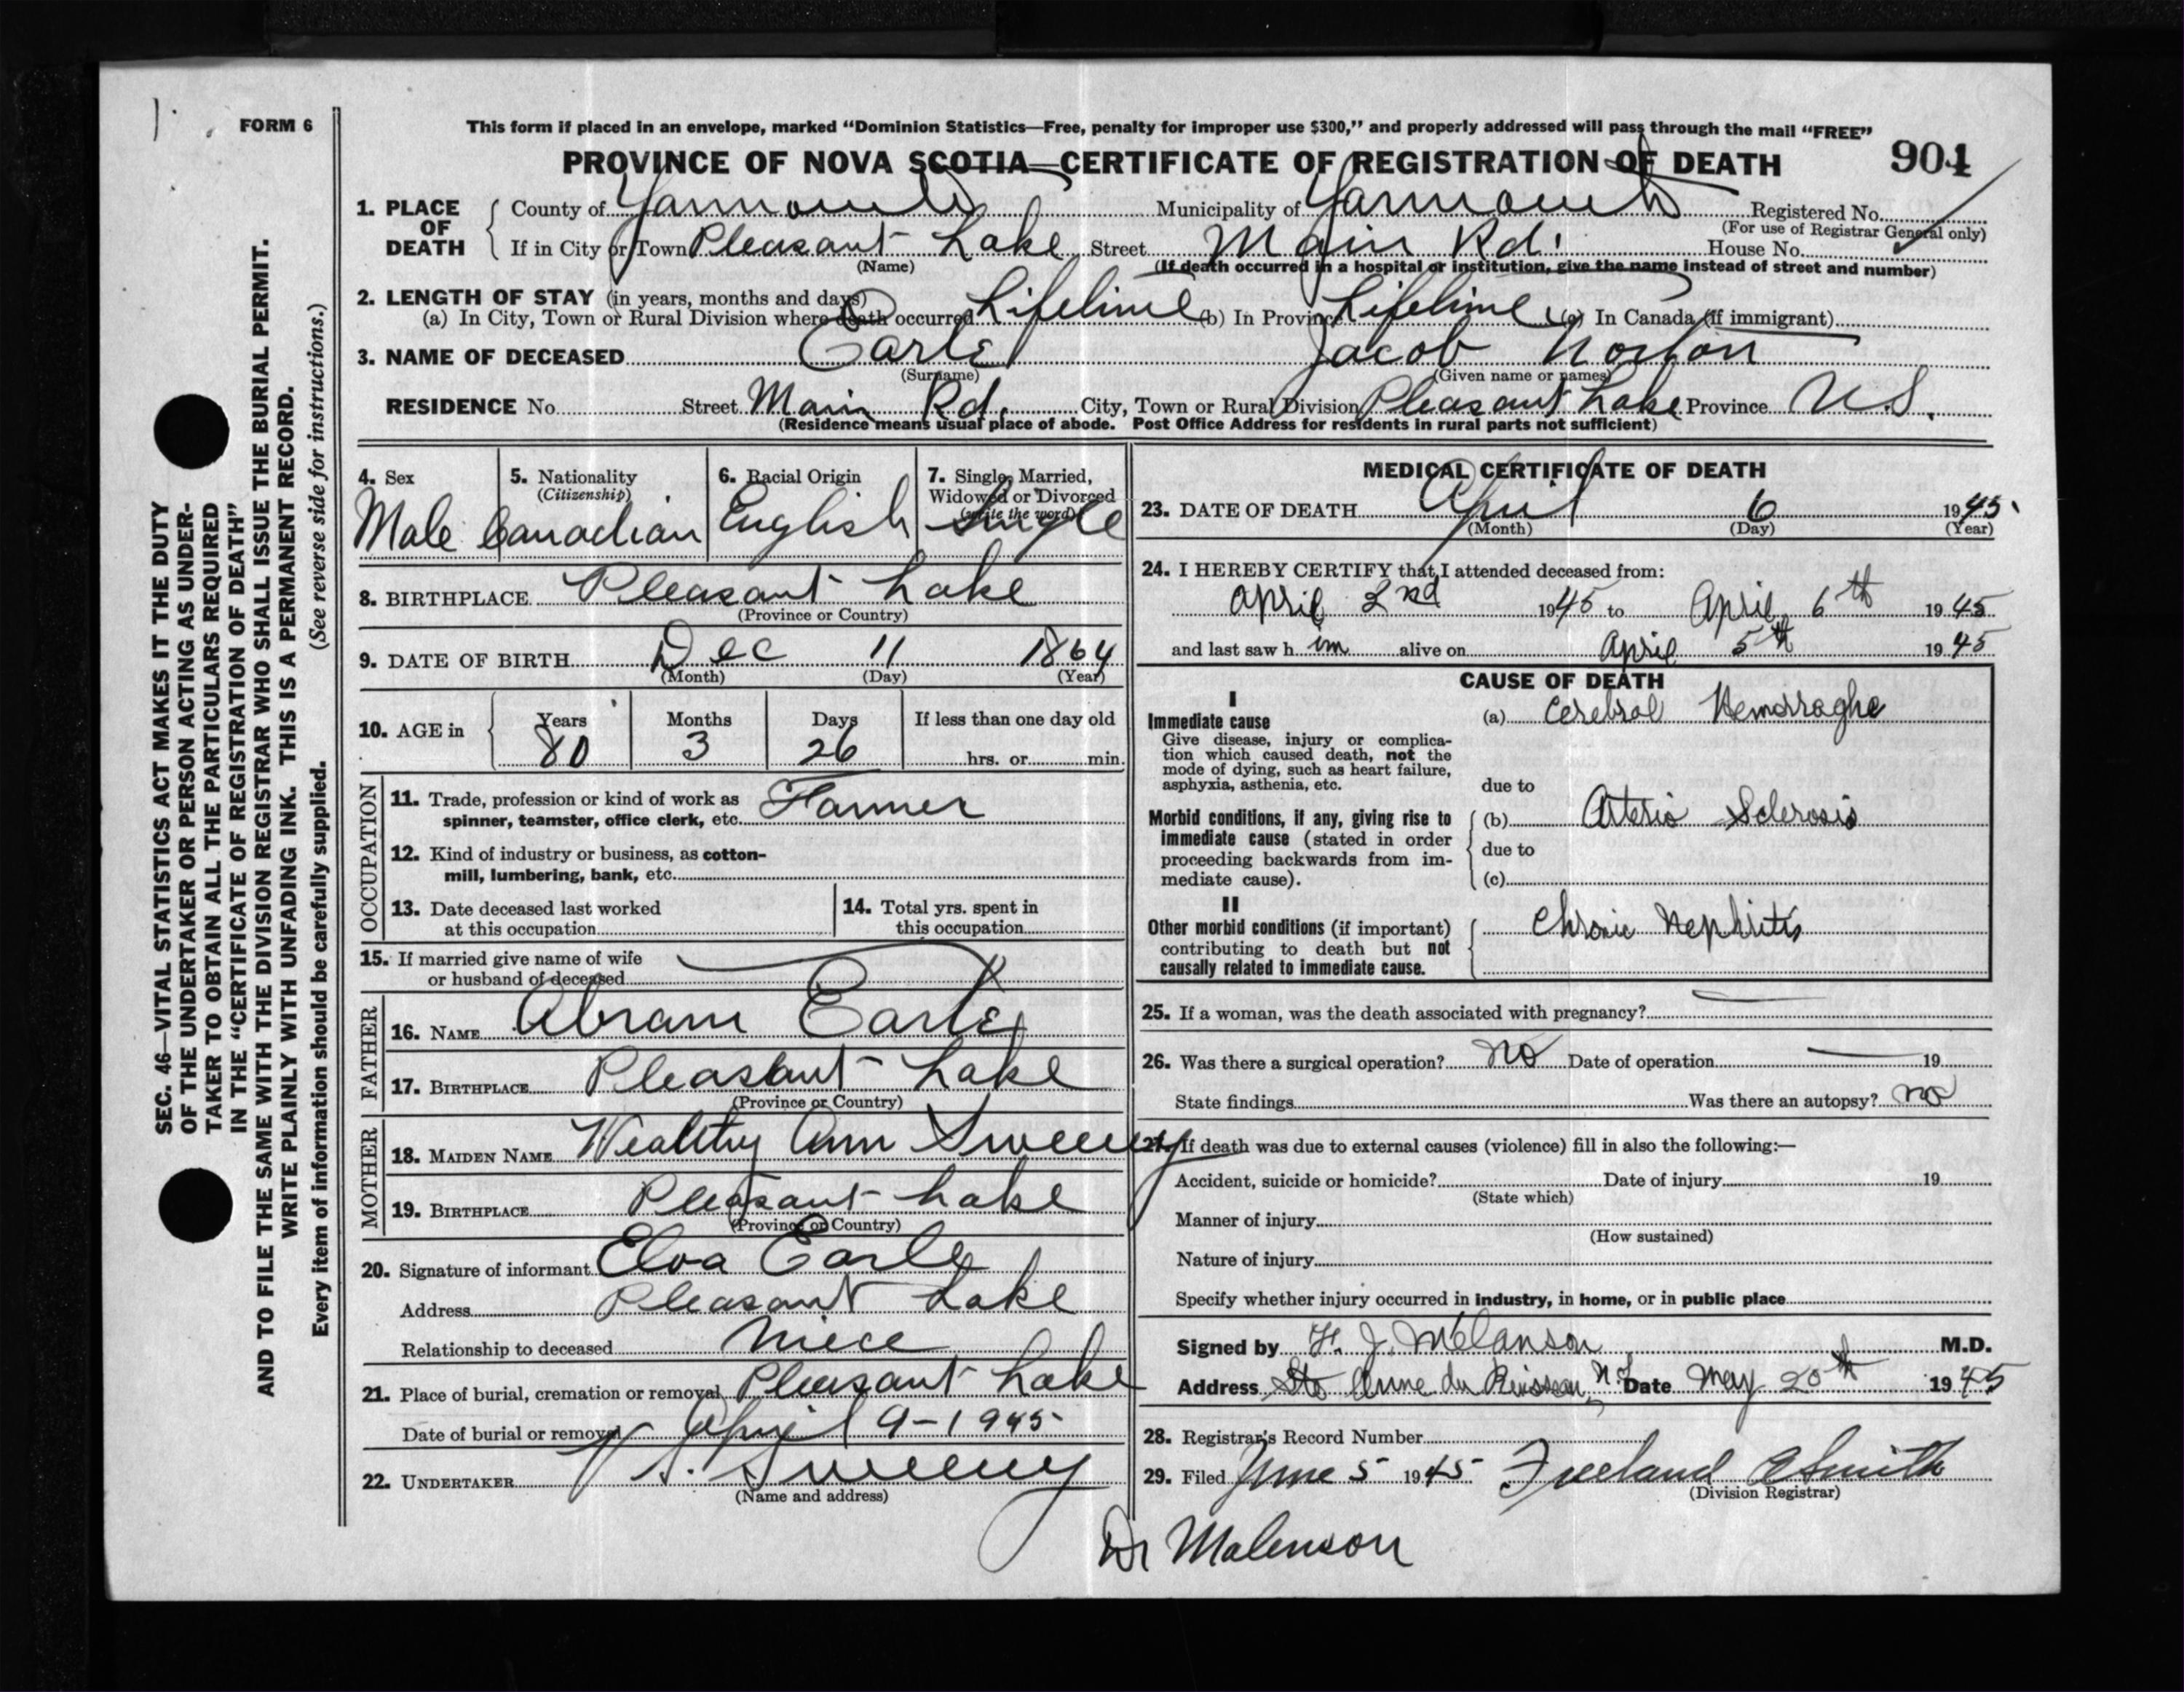 FORM 6
This form if placed in an envelope, marked “Dominion Statistics—Free, penalty for improper use $300,” and properly addressed will pass through the mail “FREE”
PROVINCE OF NOVA SCOTIA—CERTIFICATE OF REGISTRATION OF DEATH 904
1. PLACE OF DEATH County of Yarmouth Municipality of Yarmouth Registered No.
(For use of Registrar General only)
If in City or Town Pleasant Lake Street Main Rd. House No.
(Name) (If death occurred in a hospital or institution, give the name instead of street and number)
2. LENGTH OF STAY (in years, months and days)
(a) In City, Town or Rural Division where death occurred Lifetime (b) In Province Lifetime (c) In Canada (if immigrant)
3. NAME OF DECEASED Earle Jacob Norton
(Surname) (Given name or names)
RESIDENCE No. Street Main Rd. City, Town or Rural Division Pleasant Lake Province N.S.
(Residence means usual place of abode. Post Office Address for residents in rural parts not sufficient)
4. Sex Male
5. Nationality (Citizenship) Canadian
6. Racial Origin English
7. Single, Married, Widowed or Divorced (write the word) Single
8. BIRTHPLACE Pleasant Lake
(Province or Country)
9. DATE OF BIRTH Dec 11 1864
(Month) (Day) (Year)
10. AGE in Years 80 Months 3 Days 26 If less than one day old hrs. or min.
OCCUPATION
11. Trade, profession or kind of work as Farmer
spinner, teamster, office clerk, etc.
12. Kind of industry or business, as cotton-
mill, lumbering, bank, etc.
13. Date deceased last worked
at this occupation
14. Total yrs. spent in
this occupation
15. If married give name of wife
or husband of deceased
FATHER
16. NAME Abram Earle
17. BIRTHPLACE Pleasant Lake
(Province or Country)
MOTHER
18. MAIDEN NAME Wealthy Ann Sweeny
19. BIRTHPLACE Pleasant Lake
(Province or Country)
20. Signature of informant Elva Earle
Address Pleasant Lake
Relationship to deceased Niece
21. Place of burial, cremation or removal Pleasant Lake
Date of burial or removal April 9-1945
22. UNDERTAKER V. S. Sweeny
(Name and address)
MEDICAL CERTIFICATE OF DEATH
23. DATE OF DEATH April 6 1945.
(Month) (Day) (Year)
24. I HEREBY CERTIFY that I attended deceased from:
April 2nd 1945 to April 6th 1945
and last saw h im alive on April 5th 1945
CAUSE OF DEATH
I
Immediate cause (a) Cerebral Hemorraghe
Give disease, injury or complica-
tion which caused death, not the
mode of dying, such as heart failure,
asphyxia, asthenia, etc. due to
Morbid conditions, if any, giving rise to (b) Arterio Sclerosis
immediate cause (stated in order
proceeding backwards from im- due to
mediate cause). (c)
II
Other morbid conditions (if important) Chronic Nephritis
contributing to death but not
causally related to immediate cause.
25. If a woman, was the death associated with pregnancy?
26. Was there a surgical operation? no Date of operation 19
State findings Was there an autopsy? no
27. If death was due to external causes (violence) fill in also the following:—
Accident, suicide or homicide? Date of injury 19
(State which)
Manner of injury
(How sustained)
Nature of injury
Specify whether injury occurred in industry, in home, or in public place
Signed by J. Melanson M.D.
Address Ste Anne du Ruisseau, Date May 20th 1945
28. Registrar's Record Number
29. Filed June 5 1945 Freeland A Smith
(Division Registrar)
Dr Malenson
SEC. 46—VITAL STATISTICS ACT MAKES IT THE DUTY
OF THE UNDERTAKER OR PERSON ACTING AS UNDER-
TAKER TO OBTAIN ALL THE PARTICULARS REQUIRED
IN THE “CERTIFICATE OF REGISTRATION OF DEATH”
AND TO FILE THE SAME WITH THE DIVISION REGISTRAR WHO SHALL ISSUE THE BURIAL PERMIT.
WRITE PLAINLY WITH UNFADING INK. THIS IS A PERMANENT RECORD.
Every item of information should be carefully supplied. (See reverse side for instructions.)